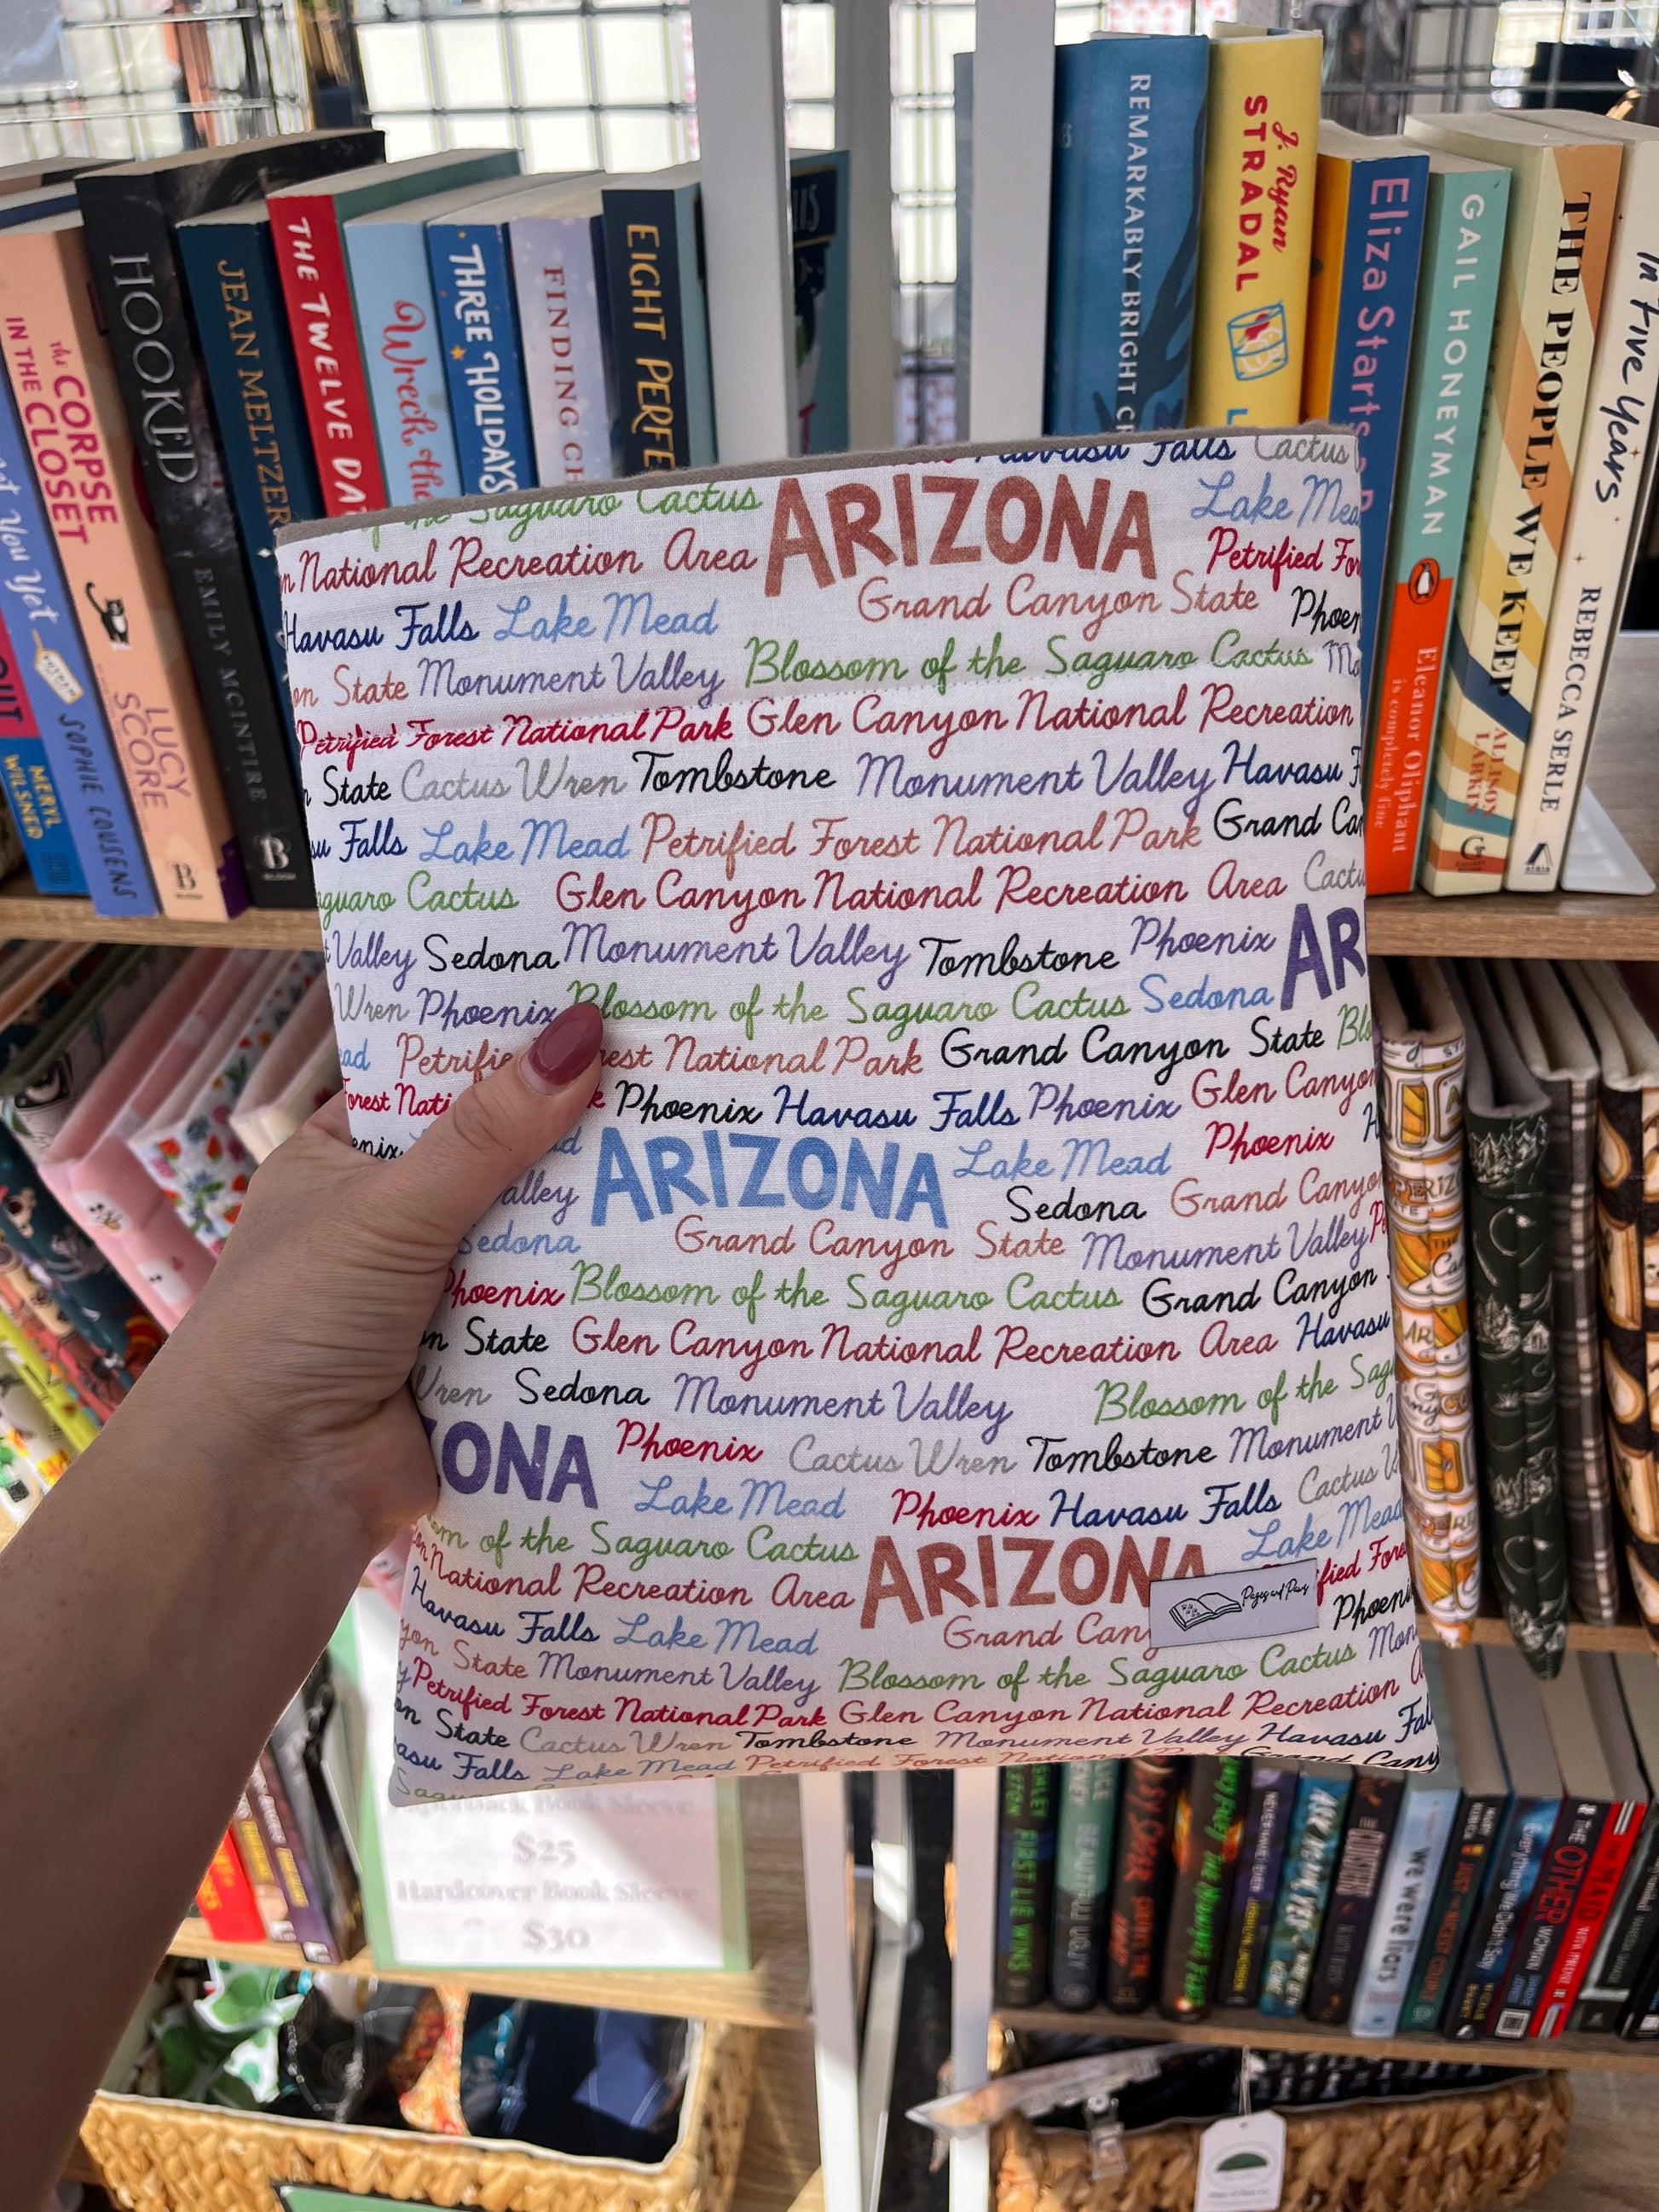 REMARKABLY BRIGHT
J. Ryan
STRADAL
Eliza Starts
GAIL HONEYMAN
Eleanor Oliphant
is completely fine
THE PEOPLE WE KEEP
ALLISON
LARKIN
In Five Years
REBECCA SERLE
You Yet
SOPHIE COUSENS
MERYL
WILSNER
The CORPSE
IN THE CLOSET
LUCY
SCORE
B
HOOKED
EMILY MCINTIRE
B
JEAN MELTZER
THE TWELVE DA
Wreck the
THREE HOLIDAYS
FINDING CH
EIGHT PERFE
Havasu Falls Cactus
the Saguaro Cactus ARIZONA Lake Mea
n National Recreation Area Petrified For
Grand Canyon State
Havasu Falls Lake Mead Phoen
on State Monument Valley Blossom of the Saguaro Cactus Mo
Petrified Forest National Park Glen Canyon National Recreation
State Cactus Wren Tombstone Monument Valley Havasu F
su Falls Lake Mead Petrified Forest National Park Grand Ca
aguaro Cactus Glen Canyon National Recreation Area Cactu
t Valley Sedona Monument Valley Tombstone Phoenix AR
Wren Phoenix Blossom of the Saguaro Cactus Sedona
ead Petrifie rest National Park Grand Canyon State Blo
Forest Nati k Phoenix Havasu Falls Phoenix Glen Canyon
enix ad ARIZONA Lake Mead Phoenix H
alley Sedona Grand Canyo
Sedona Grand Canyon State Monument Valley Pe
Phoenix Blossom of the Saguaro Cactus Grand Canyon
n State Glen Canyon National Recreation Area Havasu
Wren Sedona Monument Valley Blossom of the Sag
ZONA Phoenix Cactus Wren Tombstone Monument V
Lake Mead Phoenix Havasu Falls Cactus W
om of the Saguaro Cactus ARIZONA Lake Mead
National Recreation Area Pages and Paws ified Fore
Havasu Falls Lake Mead Grand Cany Phoeni
yon State Monument Valley Blossom of the Saguaro Cactus Mon
y Petrified Forest National Park Glen Canyon National Recreation
on State Cactus Wren Tombstone Monument Valley Havasu Fal
asu Falls Lake Mead Petrified Forest National Park Grand Cany
Sagu
Paperback Book Sleeve
$25
Hardcover Book Sleeve
$30
FIRST LIE WINS
BEAUTIFUL UGLY
we were liars
THE OTHER WOMAN
THE MAID
NITA PROSE